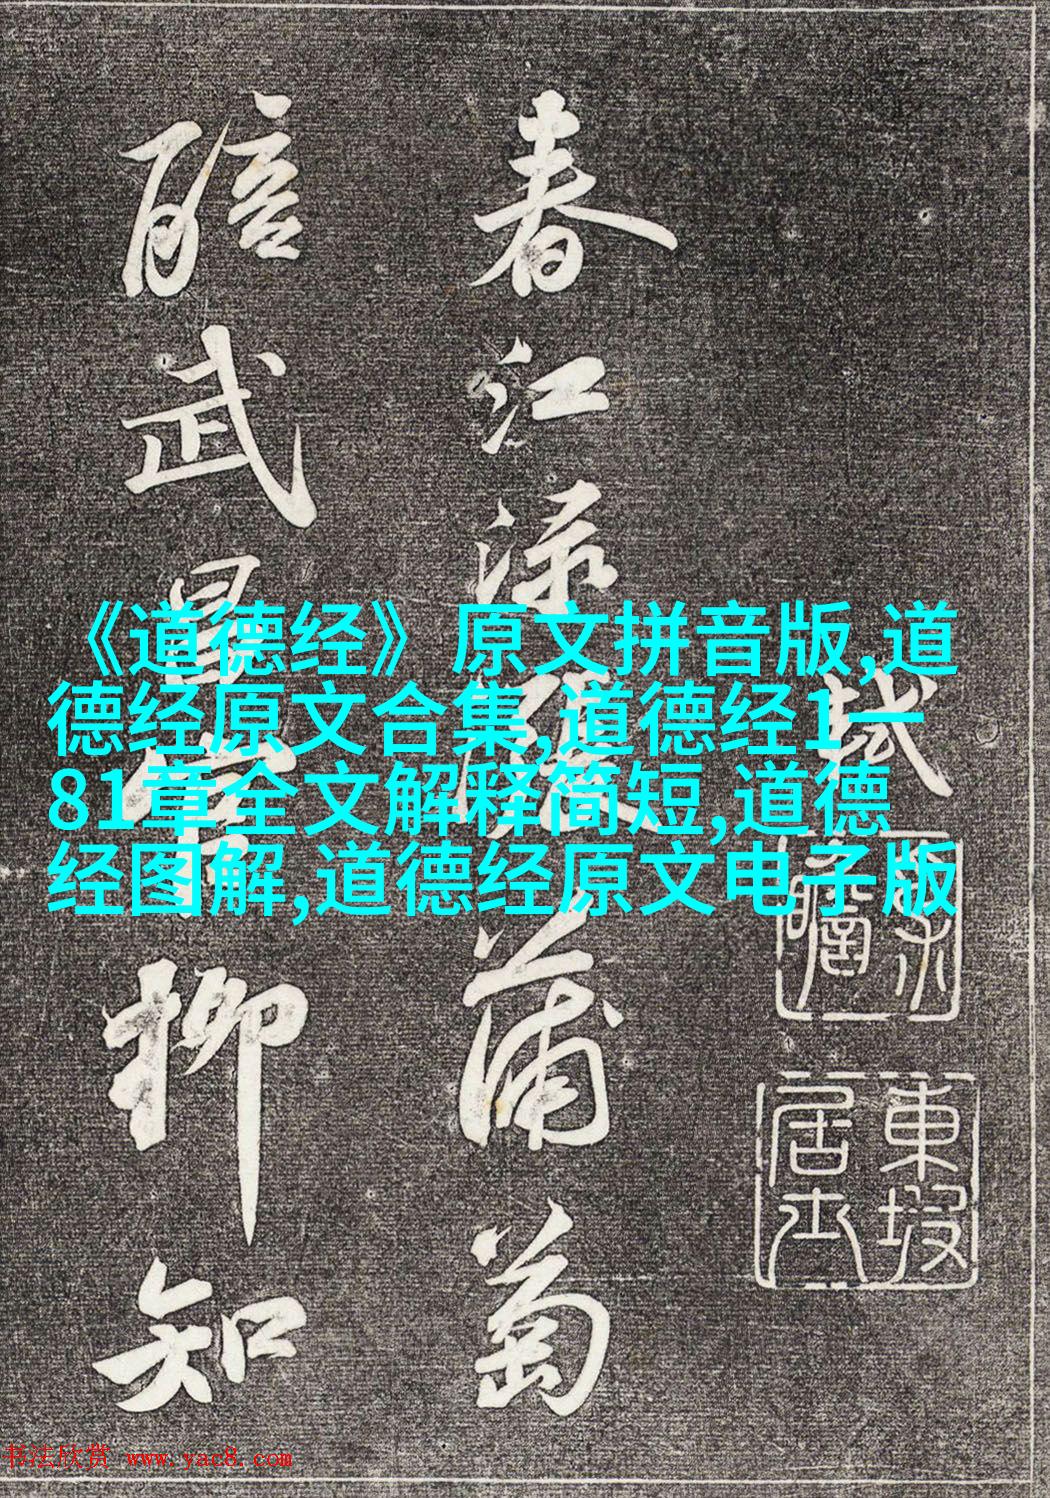 《道德经》原文拼音版,道
德经原文合集,道德经1一
81章全文解释简短,道德
经图解,道德经原文电子版
軾
東坡居士
春江渌漲蒲萄
醅武昌官柳知
书法欣赏 www.yac8.com